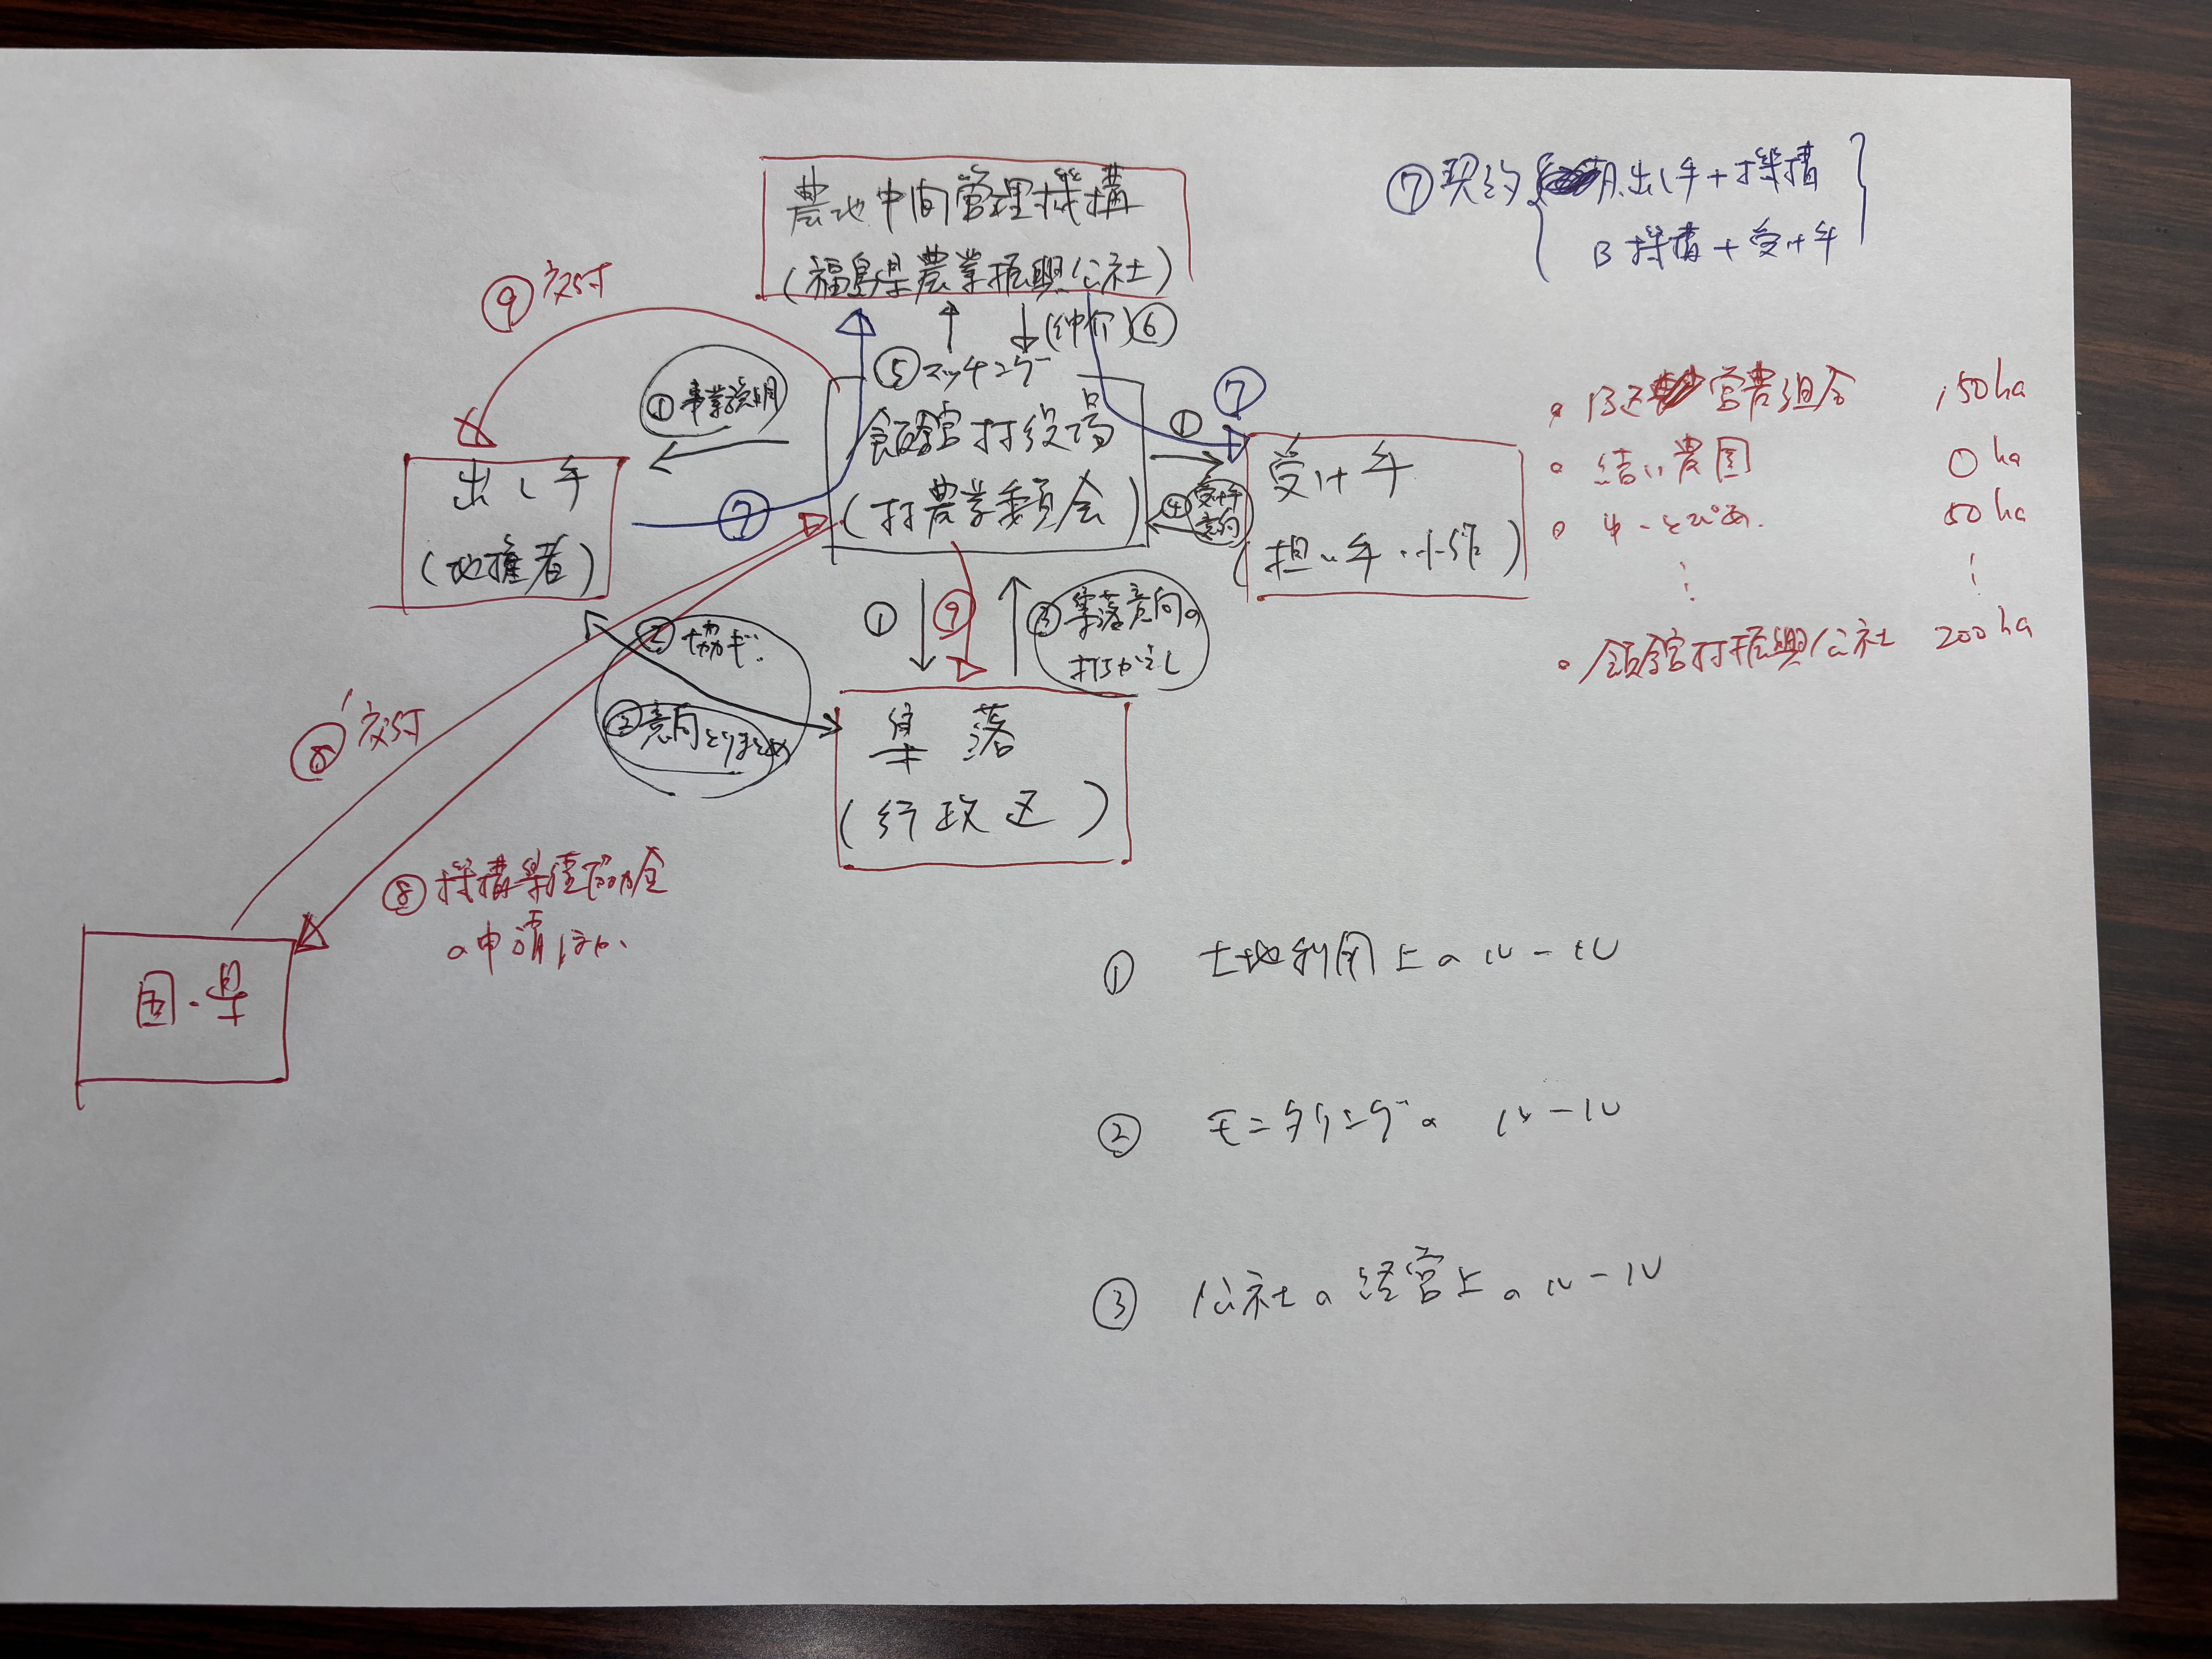 農地中間管理機構
(福島県農業振興公社)
⑦契約 A.出し手+機構
B 機構+受け手
⑨交付
(仲介)⑥
⑤マッチング
①事業説明
飯舘村役場
(村農業委員会)
出し手
(地権者)
⑦
①
⑦
④受け手意向
受け手
(担い手・
・B区営農組合 150ha
・結い農園 0ha
50ha
⋮ ⋮
・飯舘村振興公社 200ha
②協ギ.
②意向とりまとめ
①
⑨
③集落意向の
打ちかえし
集落
(行政区)
⑧'交付
⑧機構集積協力金
の申請ほか.
国・県
① 土地利用上のルール
② モニタリングの ルール
③ 公社の経営上のルール